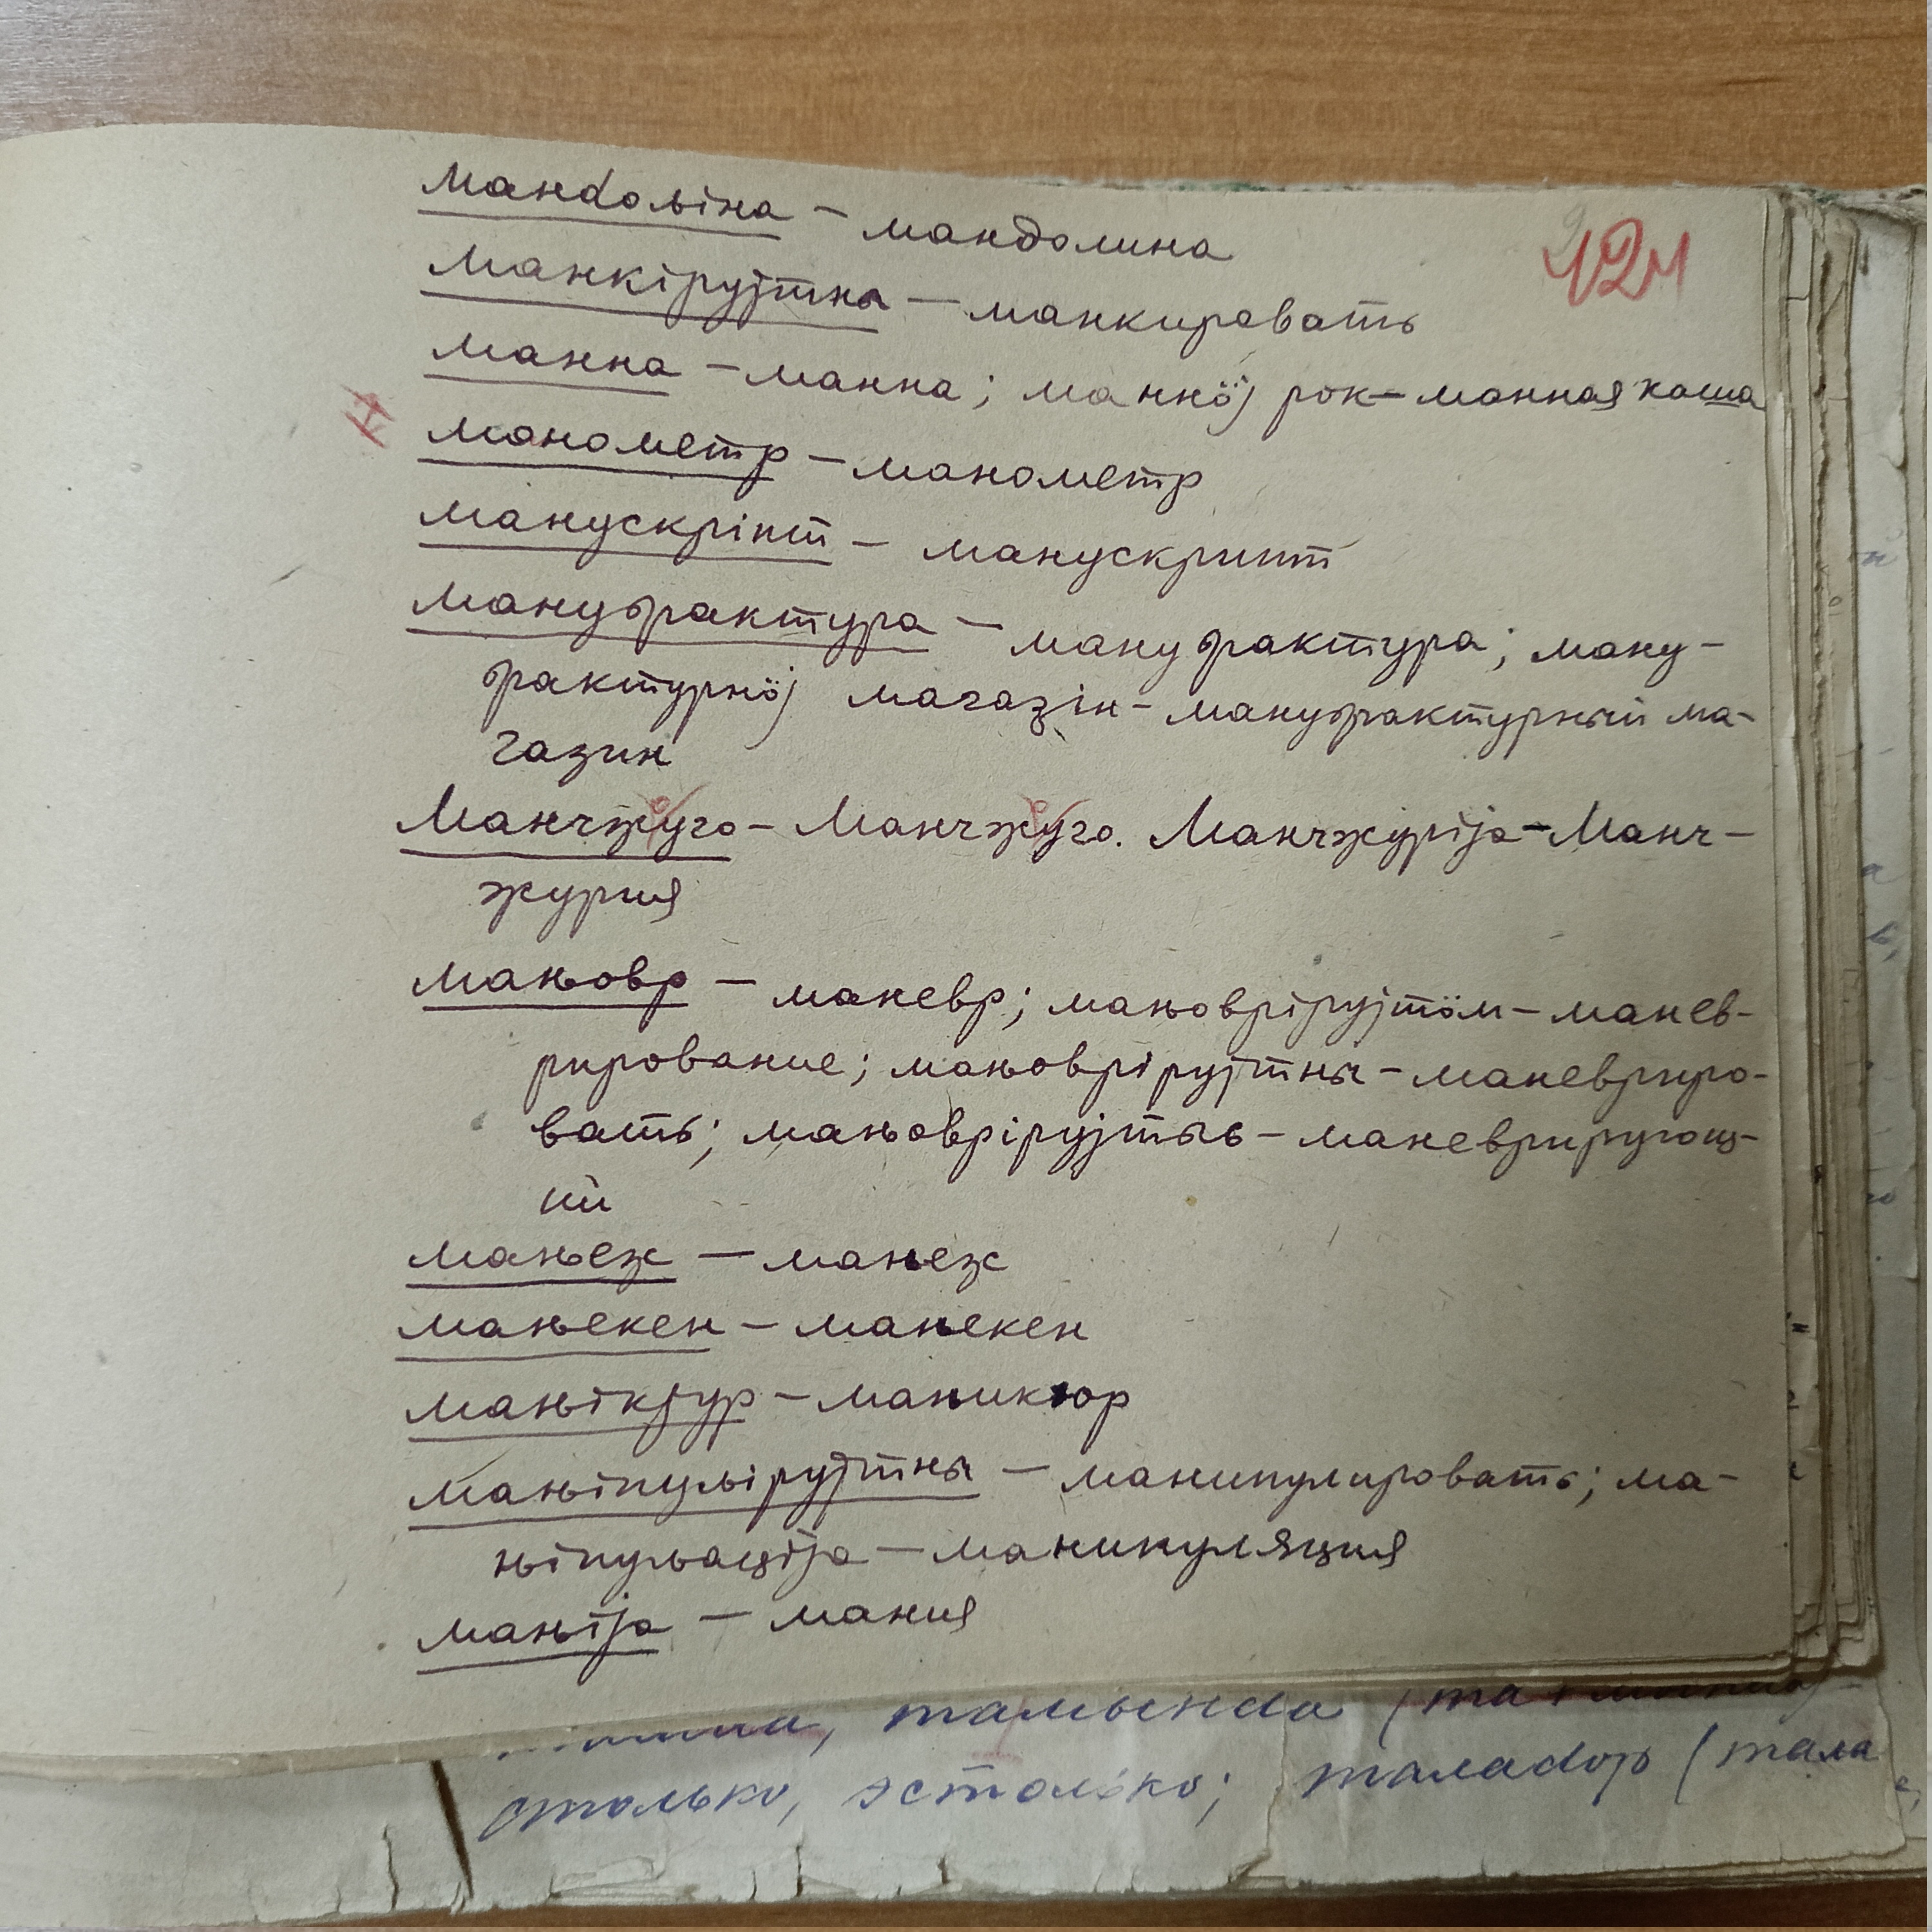 421
мандоԉіна – мандолина
манкірујтны – манкировать
манна – манна; маннӧј рок – манная каша
манометр – манометр
манускріпт – манускрипт
мануфактура – мануфактура; ману-
фактурнӧј магазін – мануфактурный ма-
газин
Манчжуго – Манчжуго. Манчжуріја – Манч-
журия
маԋовр – маневр; маԋоврірујтӧм – манев-
рирование; маԋоврірујтны – маневриро-
вать; маԋоврірујтыԍ – маневрирующ-
ий
маԋеж – манеж
маԋекен – манекен
маԋікјур – маникюр
маԋіпуԉірујтны – манипулировать; ма-
ԋіпуԉаціја – манипуляция
маԋіја – мания
столько, эстолько;